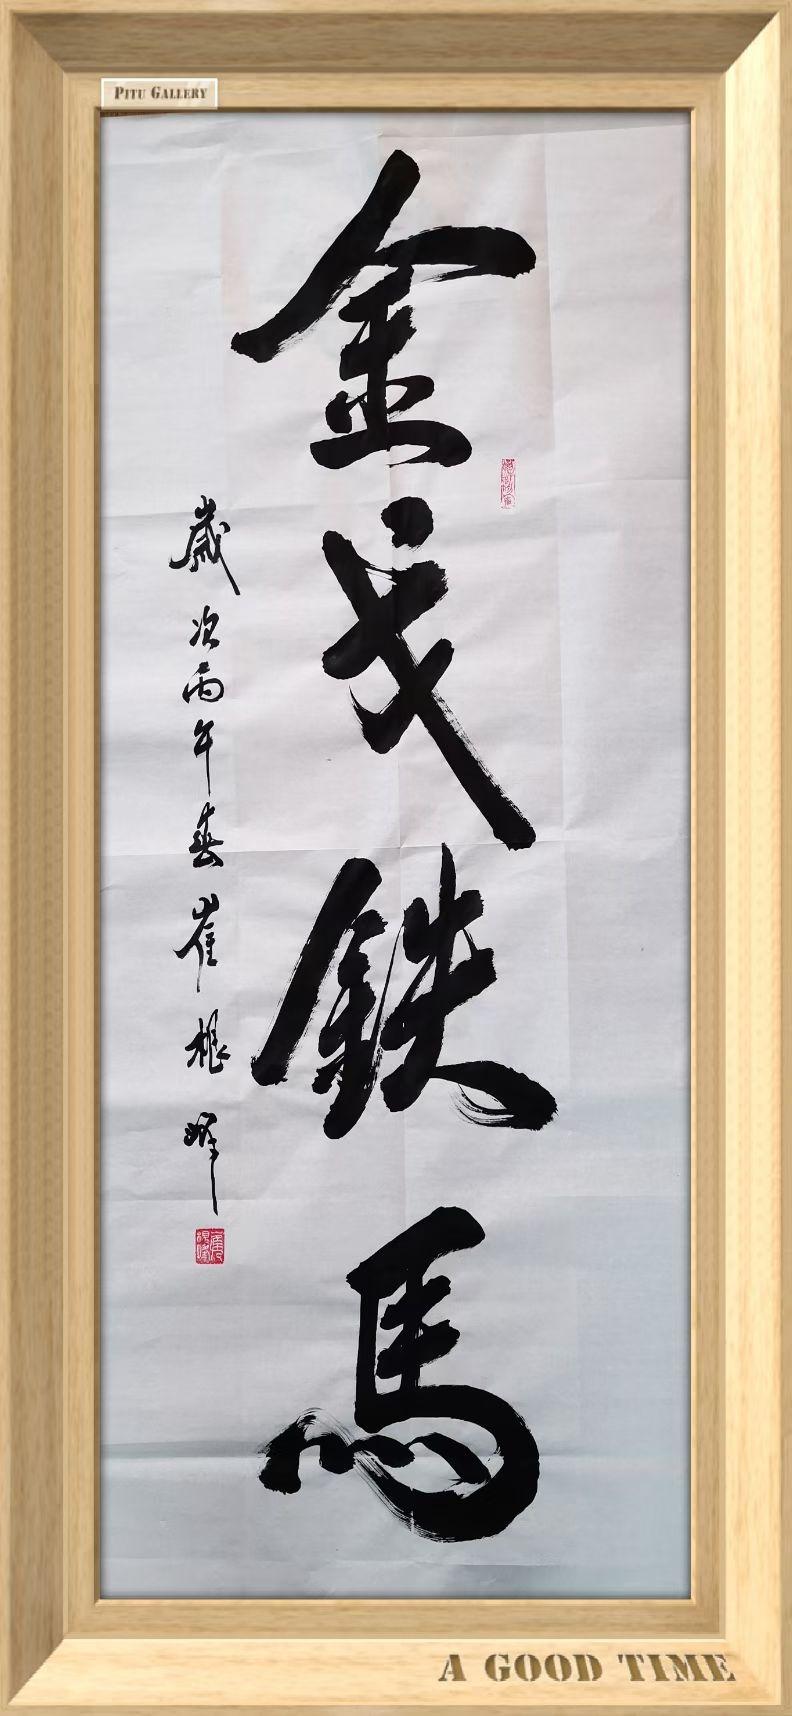 PITU GALLERY
金戈鉄馬
歲次丙午春崔根峰
A GOOD TIME